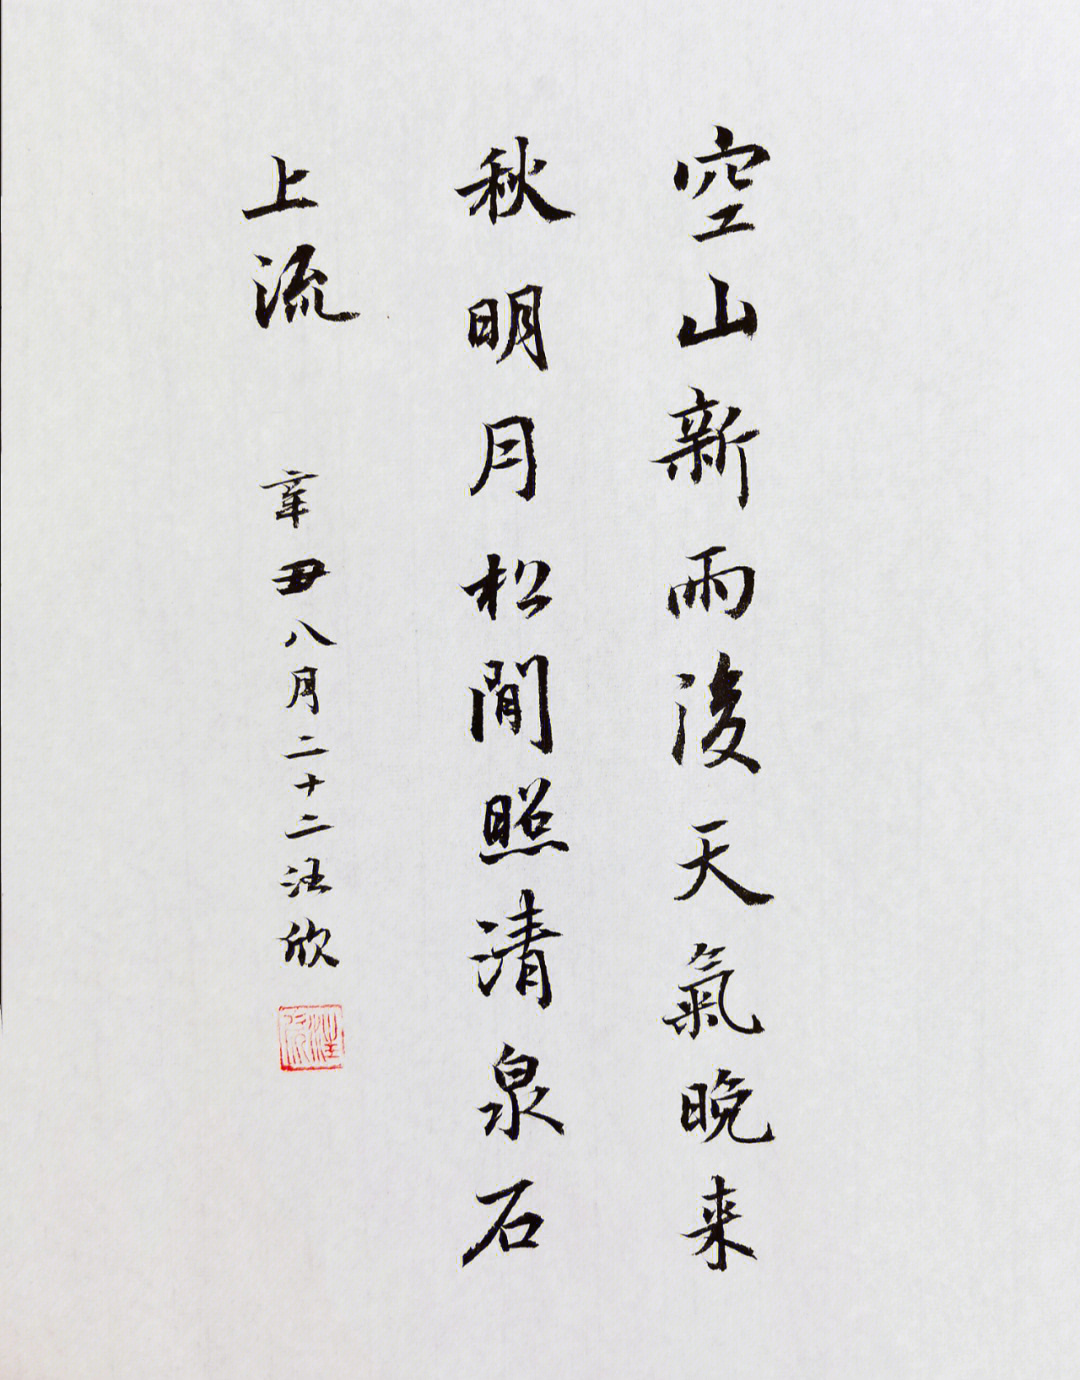 空山新雨後天氣晚来
秋明月松間照清泉石
上流
辛丑八月二十二汪欣